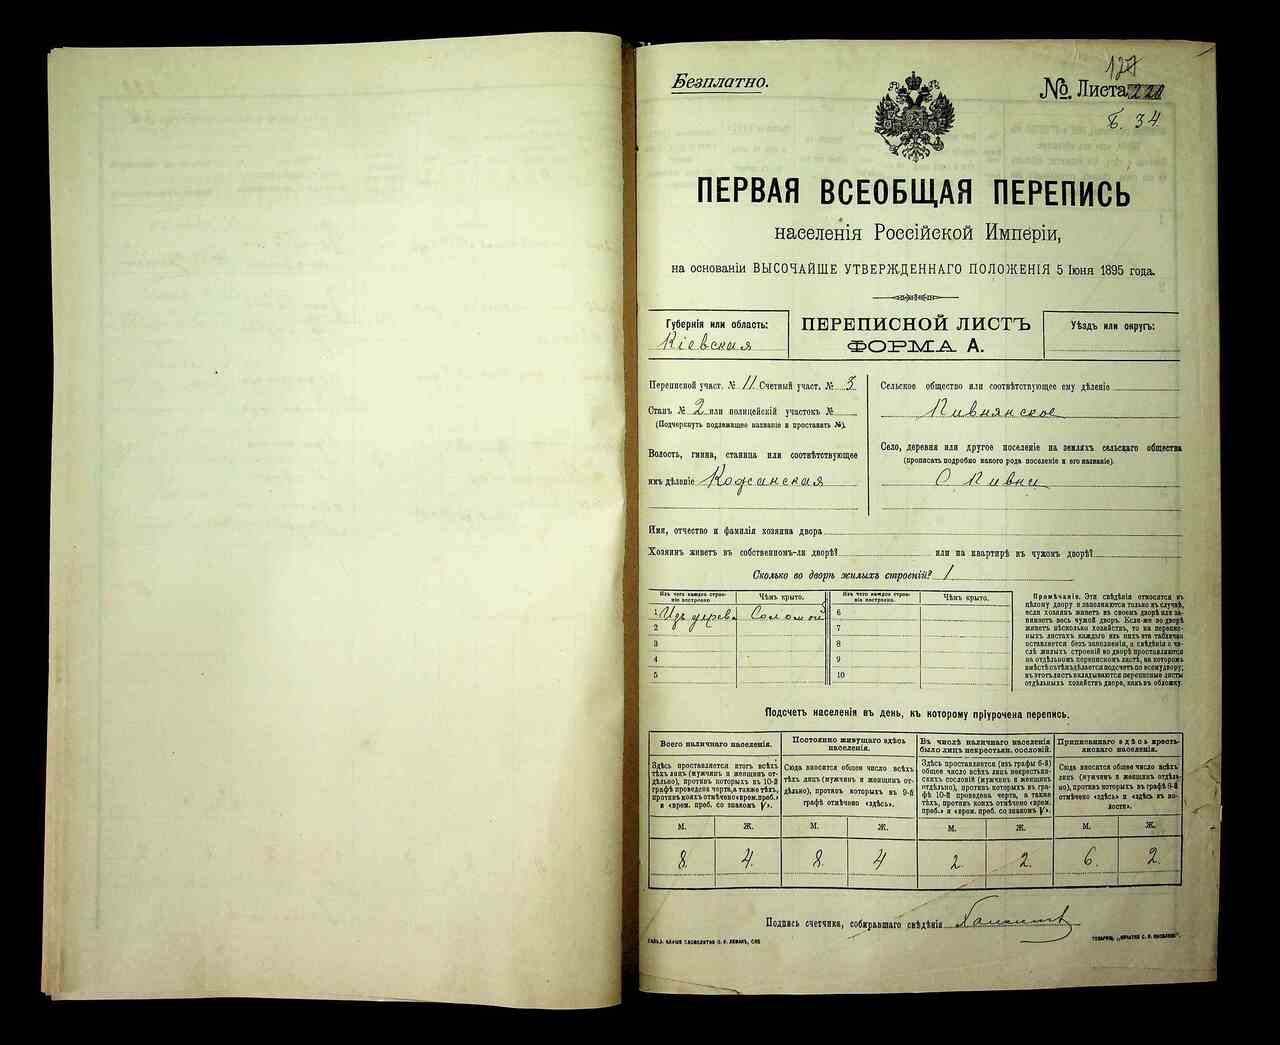 Безплатно.
127
№. Листа
Б. 34
ПЕРВАЯ ВСЕОБЩАЯ ПЕРЕПИСЬ
населенія Россійской Имперіи,
на основаніи ВЫСОЧАЙШЕ УТВЕРЖДЕННАГО ПОЛОЖЕНІЯ 5 Іюня 1895 года.
Губернія или область:
Кіевская
ПЕРЕПИСНОЙ ЛИСТЪ
ФОРМА А.
Уѣздъ или округъ:
Переписной участ. № 11 Счетный участ. № 3
Станъ № 2 или полицейскій участокъ №
(Подчеркнуть подлежащее названіе и проставить №).
Волость, гмина, станица или соотвѣтствующее
имъ дѣленіе Кожанская
Сельское общество или соотвѣтствующее ему дѣленіе
Пивнянское
Село, деревня или другое поселеніе на земляхъ сельскаго общества
(прописать подробно какого рода поселеніе и его названіе).
С. Пивни
Имя, отчество и фамилія хозяина двора
Хозяинъ живетъ въ собственномъ-ли дворѣ? или на квартирѣ въ чужомъ дворѣ?
Сколько во дворѣ жилыхъ строеній? 1
Изъ чего каждое строеніе построено.
Чѣмъ крыто.
Изъ чего каждое строеніе построено.
Чѣмъ крыто.
1 Изъ дерева Соломой 6
2 7
3 8
4 9
5 10
Примѣчаніе. Эти свѣдѣнія относятся къ
цѣлому двору и заполняются только въ случаѣ,
если хозяинъ живетъ въ своемъ дворѣ или за-
нимаетъ весь чужой дворъ. Если-же во дворѣ
живетъ нѣсколько хозяйствъ, то на перепис-
ныхъ листахъ каждаго изъ нихъ эта табличка
оставляется безъ заполненія, а свѣдѣнія о чи-
слѣ жилыхъ строеній во дворѣ проставляются
на отдѣльномъ переписномъ листѣ, на которомъ
вмѣстѣ съ тѣмъ дѣлается подсчетъ по всему двору;
въ этотъ листъ вкладываются переписные листы
отдѣльныхъ хозяйствъ двора, какъ въ обложку.
Подсчетъ населенія въ день, къ которому пріурочена перепись.
Всего наличнаго населенія.
Здѣсь проставляется итогъ всѣхъ
тѣхъ лицъ (мужчинъ и женщинъ от-
дѣльно), противъ которыхъ въ 10-й
графѣ проведена черта, а также тѣхъ,
противъ коихъ отмѣчено «врем. преб.»
и «врем. преб. со знакомъ V».
Постоянно живущаго здѣсь
населенія.
Сюда вносится общее число всѣхъ
тѣхъ лицъ (мужчинъ и женщинъ от-
дѣльно), противъ которыхъ въ 9-й
графѣ отмѣчено «здѣсь».
Въ числѣ наличнаго населенія
было лицъ некрестьян. сословій.
Здѣсь проставляется (изъ графы 6-й)
общее число всѣхъ лицъ некрестьян-
скихъ сословій (мужчинъ и женщинъ
отдѣльно), противъ которыхъ въ гра-
фѣ 10-й проведена черта, а также
тѣхъ, противъ коихъ отмѣчено «врем.
преб.» и «врем. преб. со знакомъ V».
Приписаннаго здѣсь кресть-
янскаго населенія.
Сюда вносится общее число всѣхъ
лицъ (мужчинъ и женщинъ отдѣль-
но), противъ которыхъ въ графѣ 8-й
отмѣчено «здѣсь» и «здѣсь въ во-
лости».
М. Ж. М. Ж. М. Ж. М. Ж.
8. 4. 8. 4 2 2. 6. 2.
Подпись счетчика, собиравшаго свѣдѣнія